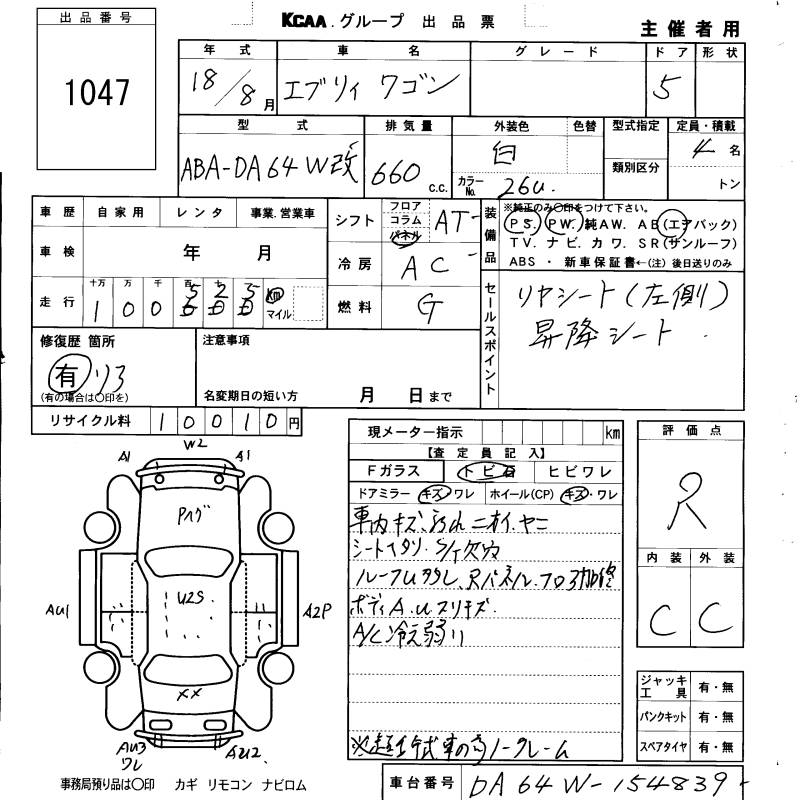 出品番号
1047
KCAA.グループ 出品票
主催者用
年式 車名 グレード ドア 形状
18/8月 エブリィ ワゴン 5
型式 排気量 外装色 色替 型式指定 定員・積載
ABA-DA64W改 660 c.c. 白 4名
カラーNo. 26U. 類別区分 トン
車歴 自家用 レンタ 事業.営業車
シフト フロア コラム パネル AT
装備品 ※純正のみ○印をつけて下さい。
PS. PW. 純AW. AB(エアバック)
TV. ナビ. カワ. SR(サンルーフ)
ABS ・ 新車保証書←(注)後日送りのみ
車検 年 月
冷房 AC
走行 十万 万 千 百 十 km マイル
100525
燃料 G
セールスポイント
リヤシート(左側)
昇降シート
修復歴 箇所
有 リア
(有の場合は○印を)
注意事項
名変期日の短い方 月 日まで
リサイクル料 10010円
現メーター指示 km
評価点
R
【査定員記入】
Fガラス トビ石 ヒビワレ
ドアミラー キズ・ワレ ホイール(CP) キズ・ワレ
車内キズ、汚れ ニオイ.ヤニ
シートヘタリ.
ボディA.Uスリキズ.
A/C冷え弱り
内装 外装
C C
W2
A1 A1
U2S
AU1 A2P
XX
AU3 ワレ AU2
ジャッキ工具 有・無
パンクキット 有・無
スペアタイヤ 有・無
※超低年式車の為ノークレーム
事務局預り品は○印 カギ リモコン ナビロム
車台番号 DA64W-154839